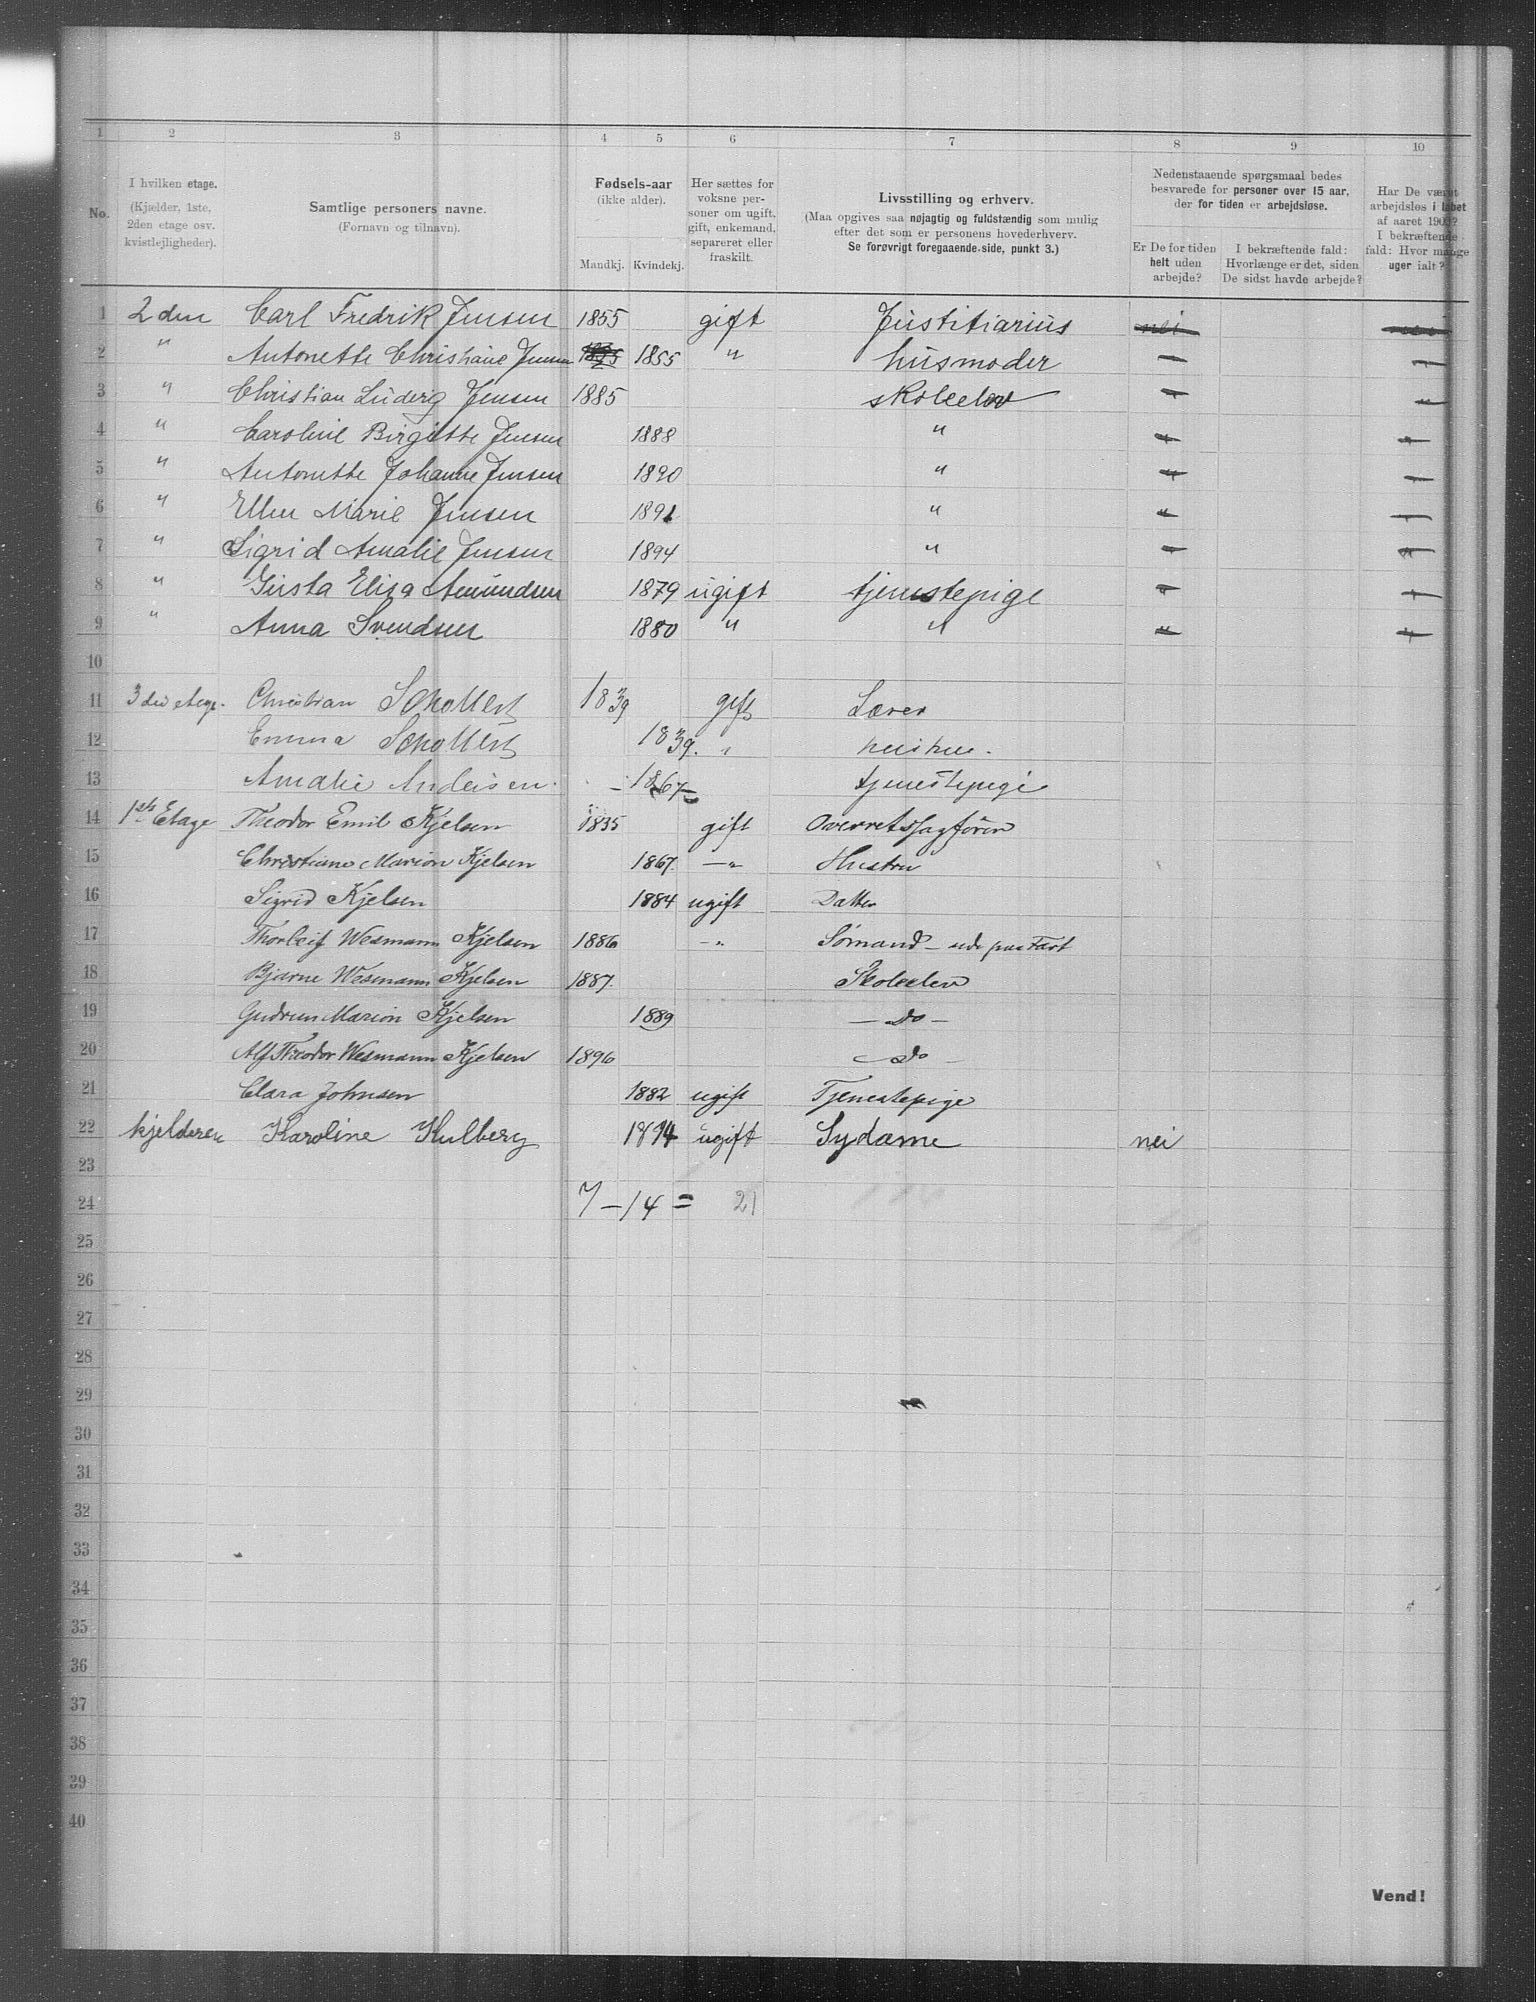 1 2 3 4 5 6 7 8 9 10
No.
I hvilken etage.
(Kjælder, 1ste,
2den etage osv.
kvistlejligheder).
Samtlige personers navne.
(Fornavn og tilnavn).
Fødsels-aar
(ikke alder).
Mandkj. Kvindekj.
Her sættes for
voksne per-
soner om ugift,
gift, enkemand,
separeret eller
fraskilt.
Livsstilling og erhverv.
(Maa opgives saa nøjagtig og fuldstændig som mulig
efter det som er personens hovederhverv.
Se forøvrigt foregaaende side, punkt 3.)
Nedenstaaende spørgsmaal bedes
besvarede for personer over 15 aar,
der for tiden er arbejdsløse.
Er De for tiden
helt uden
arbejde?
I bekræftende fald:
Hvorlænge er det, siden
De sidst havde arbejde?
Har De været
arbejdsløs i løbet
af aaret 1902?
I bekræftende
fald: Hvor mange
uger ialt?
1 2 den Carl Fredrik Jensen 1855 gift Justitiarius nei nei
2 " Antonette Christiane Jensen 1855 " husmoder
3 " Christian Ludvig Jensen 1885 skoleelev
4 " Caroline Birgitte Jensen 1888 "
5 " Antonette Johanne Jensen 1890 "
6 " Ellen Marie Jensen 1891 "
7 " Sigrid Amalie Jensen 1894 "
8 " Gusta Elisa Amundsen 1879 ugift tjenestepige
9 " Anna Svendsen 1880 " "
10
11 3die etage. Christian Schollert 1839 gift Lærer
12 Emma Schollert 1839. " hustru.
13 Amalie Andersen. 1867 tjenestepige
14 1ste Etage Theodor Emil Kjelsen 1835 gift Overretssagfører
15 Christiane Marion Kjelsen 1867. —"— Hustru
16 Sigrid Kjelsen 1884 ugift Datter
17 Thorleif Wesmann Kjelsen 1886 —"— Sømand – ude paa Fart
18 Bjarne Wesmann Kjelsen 1887. Skoleelev
19 Gudrun Marion Kjelsen 1889 — Do —
20 Alf Theodor Wesmann Kjelsen 1896 — Do —
21 Clara Johnsen 1882 ugift Tjenestepige
22 kjelderen Karoline Hulberg ugift Sydame nei
23
24 7 – 14 = 21
25
26
27
28
29
30
31
32
33
34
35
36
37
38
39
40
Vend!